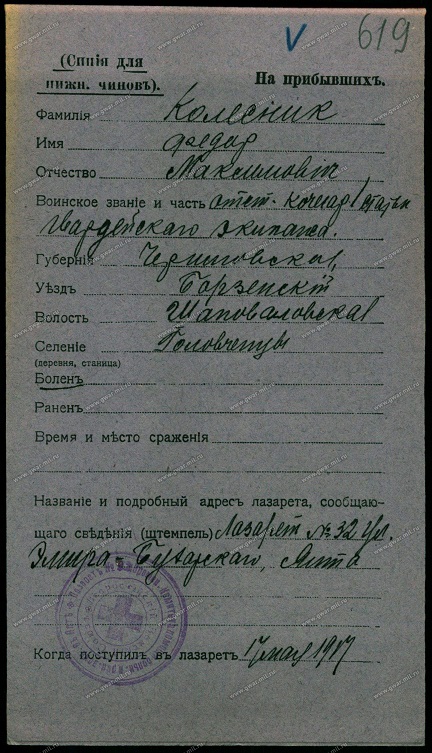 V 619
(Синія для
нижн. чиновъ).
На прибывшихъ.
Фамилія Колесник
Имя Федор
Отчество Максимович
Воинское званіе и часть отст. кочегар 1 статьи
Гвардейского экипажа.
Губернія Черниговская,
Уѣздъ Борзенскій
Волость Шаповаловская
Селеніе Головченцы
(деревня, станица)
Боленъ
Раненъ
Время и мѣсто сраженія
Названіе и подробный адресъ лазарета, сообщаю-
щаго свѣдѣнія (штемпель) Лазарет № 32
Эмира-Бухарского, Ялта
Когда поступилъ въ лазаретъ 17 мая 1917
www.gwar.mil.ru